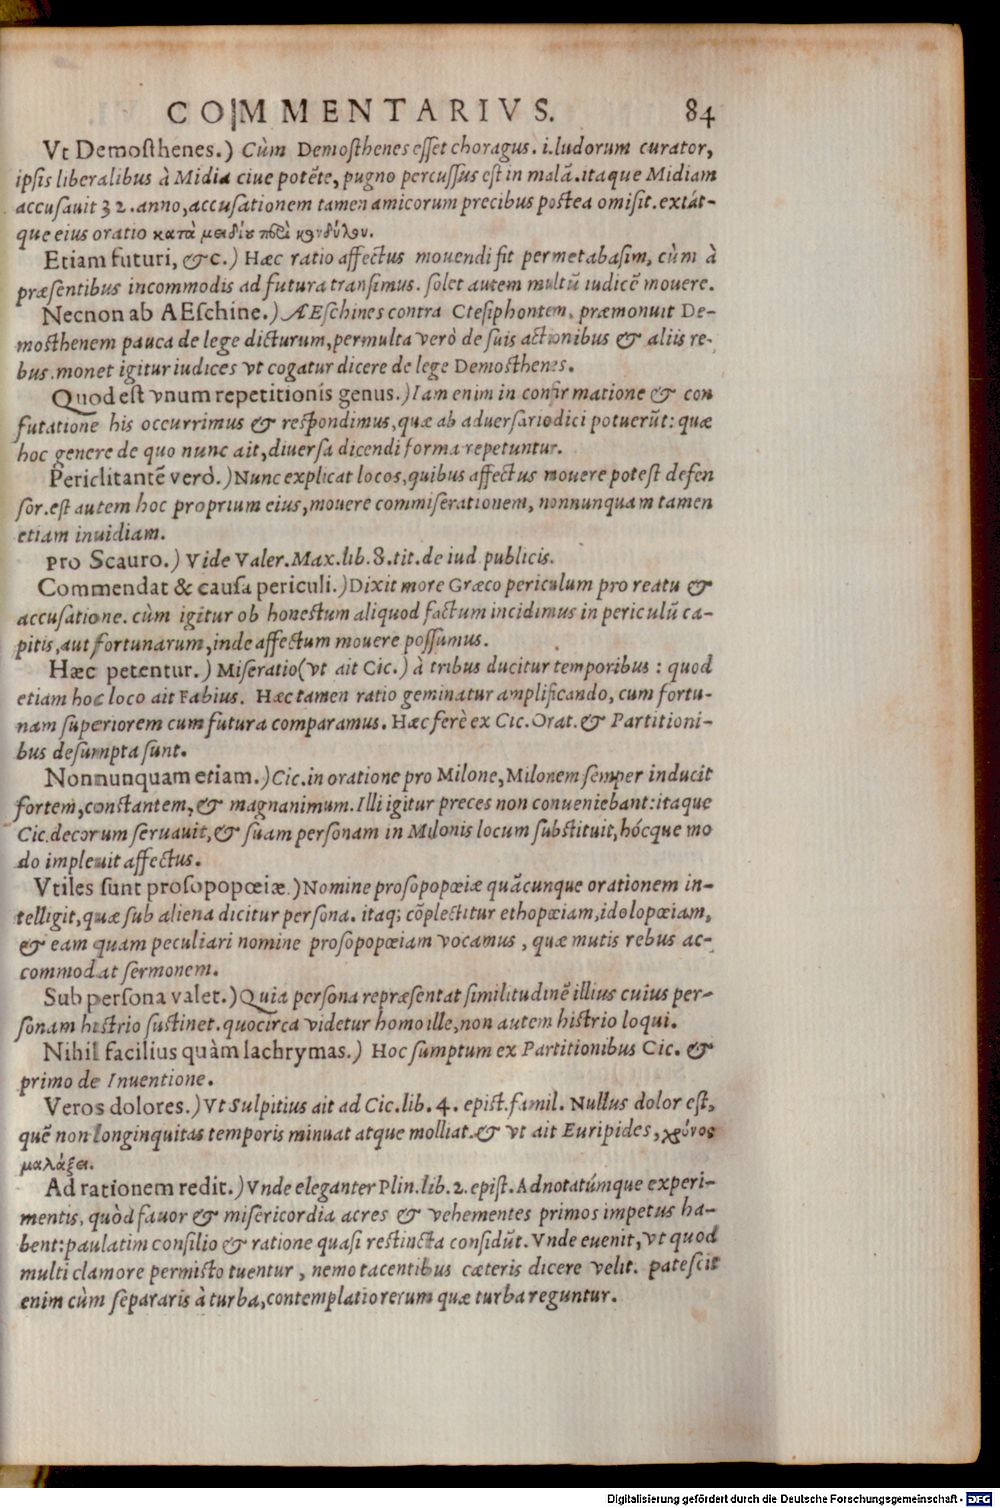 COMMENTARIVS. 84
Vt Demosthenes.) Cùm Demosthenes esset choragus. i. ludorum curator,
ipsis liberalibus à Midia ciue potẽte, pugno percussus est in malã. itaque Midiam
accusauit 32. anno, accusationem tamen amicorum precibus postea omisit. extát-
que eius oratio κατὰ μειδίου περὶ κονδύλου.
Etiam futuri, &c.) Hæc ratio affectus mouendi fit per metabasim, cùm à
præsentibus incommodis ad futura transimus. solet autem multũ iudicẽ mouere.
Necnon ab AEschine.) Æschines contra Ctesiphontem, præmonuit De-
mosthenem pauca de lege dicturum, permulta verò de suis actionibus & aliis re-
bus. monet igitur iudices vt cogatur dicere de lege Demosthenes.
Quod est vnum repetitionis genus.) Iam enim in confirmatione & con
futatione his occurrimus & respondimus, quæ ab aduersario dici potuerũt: quæ
hoc genere de quo nunc ait, diuersa dicendi forma repetuntur.
Periclitantẽ verò.) Nunc explicat locos, quibus affectus mouere potest defen
sor. est autem hoc proprium eius, mouere commiserationem, nonnunquam tamen
etiam inuidiam.
pro Scauro.) Vide Valer. Max. lib. 8. tit. de iud. publicis.
Commendat & causa periculi.) Dixit more Græco periculum pro reatu &
accusatione. cùm igitur ob honestum aliquod factum incidimus in periculũ ca-
pitis, aut fortunarum, inde affectum mouere possumus.
Hæc petentur.) Miseratio (vt ait Cic.) à tribus ducitur temporibus: quod
etiam hoc loco ait Fabius. Hæc tamen ratio geminatur amplificando, cum fortu-
nam superiorem cum futura comparamus. Hæc ferè ex Cic. Orat. & Partitioni-
bus desumpta sunt.
Nonnunquam etiam.) Cic. in oratione pro Milone, Milonem semper inducit
fortem, constantem, & magnanimum. Illi igitur preces non conueniebant: itaque
Cic. decorum seruauit, & suam personam in Milonis locum substituit, hócque mo
do impleuit affectus.
Vtiles sunt prosopopœiæ.) Nomine prosopopœiæ quãcunque orationem in-
telligit, quæ sub aliena dicitur persona. itaq; cõplectitur ethopœiam, idolopœiam,
& eam quam peculiari nomine prosopopœiam vocamus, quæ mutis rebus ac-
commodat sermonem.
Sub persona valet.) Quia persona repræsentat similitudinẽ illius cuius per-
sonam histrio sustinet. quocirca videtur homo ille, non autem histrio loqui.
Nihil facilius quàm lachrymas.) Hoc sumptum ex Partitionibus Cic. &
primo de Inuentione.
Veros dolores.) Vt Sulpitius ait ad Cic. lib. 4. epist. famil. Nullus dolor est,
quẽ non longinquitas temporis minuat atque molliat. & vt ait Euripides, χρόνος
μαλάξει.
Ad rationem redit.) Vnde eleganter Plin. lib. 2. epist. Adnotatúmque experi-
mentis, quòd fauor & misericordia acres & vehementes primos impetus ha-
bent: paulatim consilio & ratione quasi restincta considũt. Vnde euenit, vt quod
multi clamore permisto tuentur, nemo tacentibus cæteris dicere velit. patescit
enim cùm separaris à turba, contemplatio rerum quæ turba reguntur.
Digitalisierung gefördert durch die Deutsche Forschungsgemeinschaft - DFG